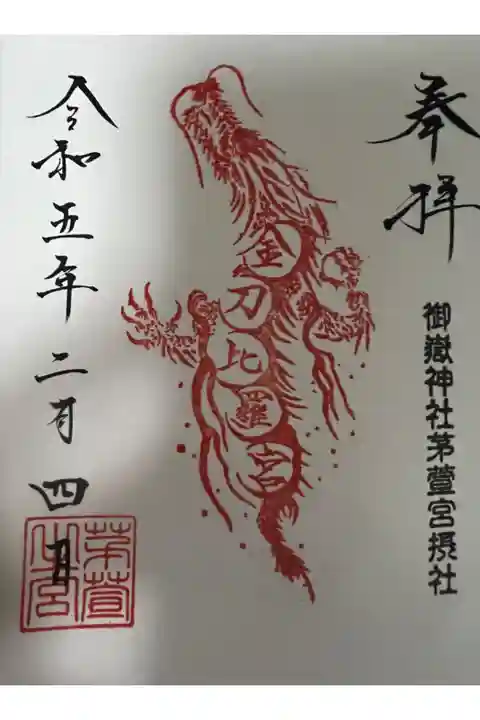 奉拝
御嶽神社茅萱宮摂社
金刀比羅宮
令和五年二月四日
茅萱
之宮